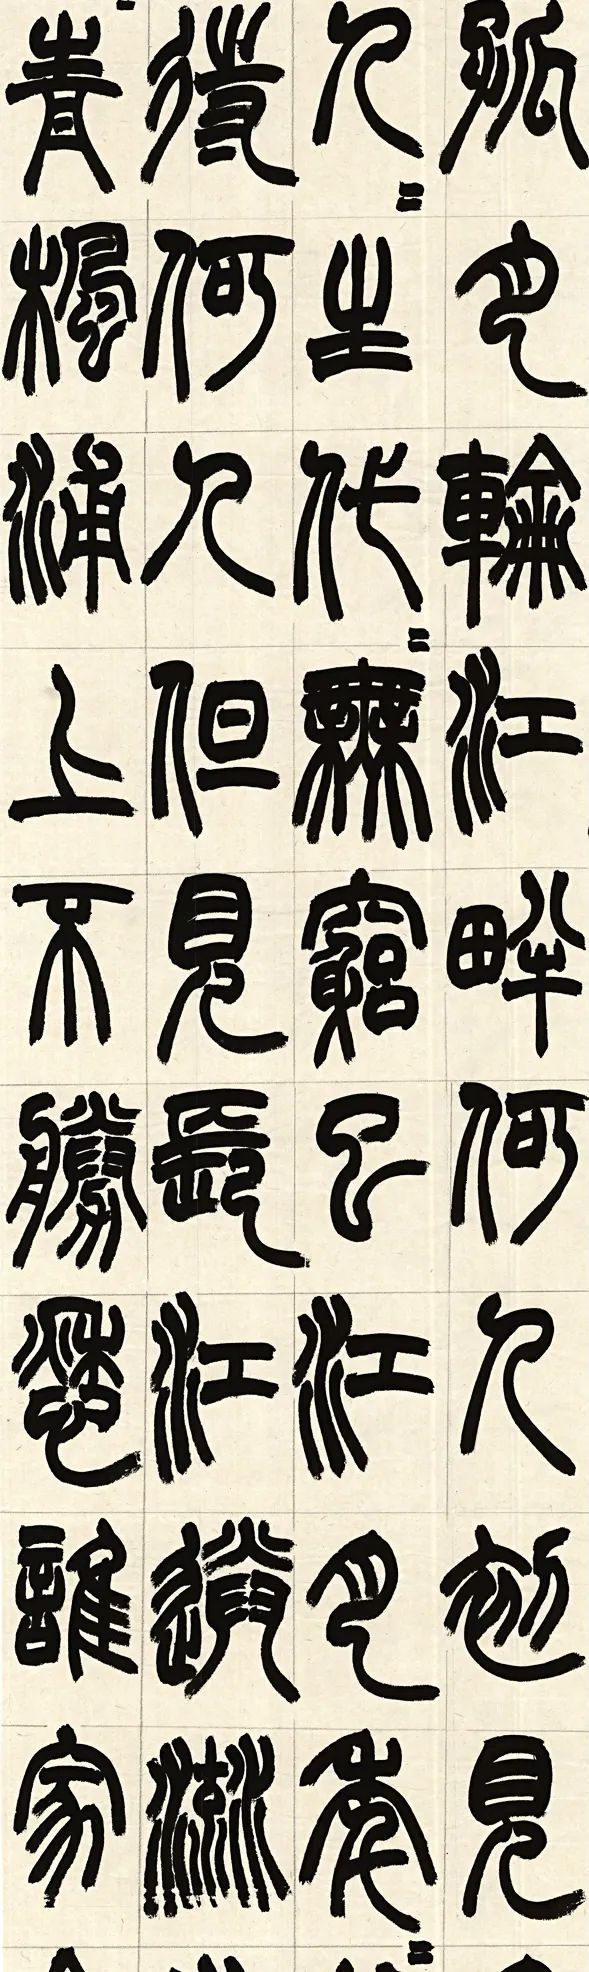 孤月輪江畔何人初見
人〻生代〻無窮已江月年〻
待何人但見長江送流
青楓浦上不勝愁誰家